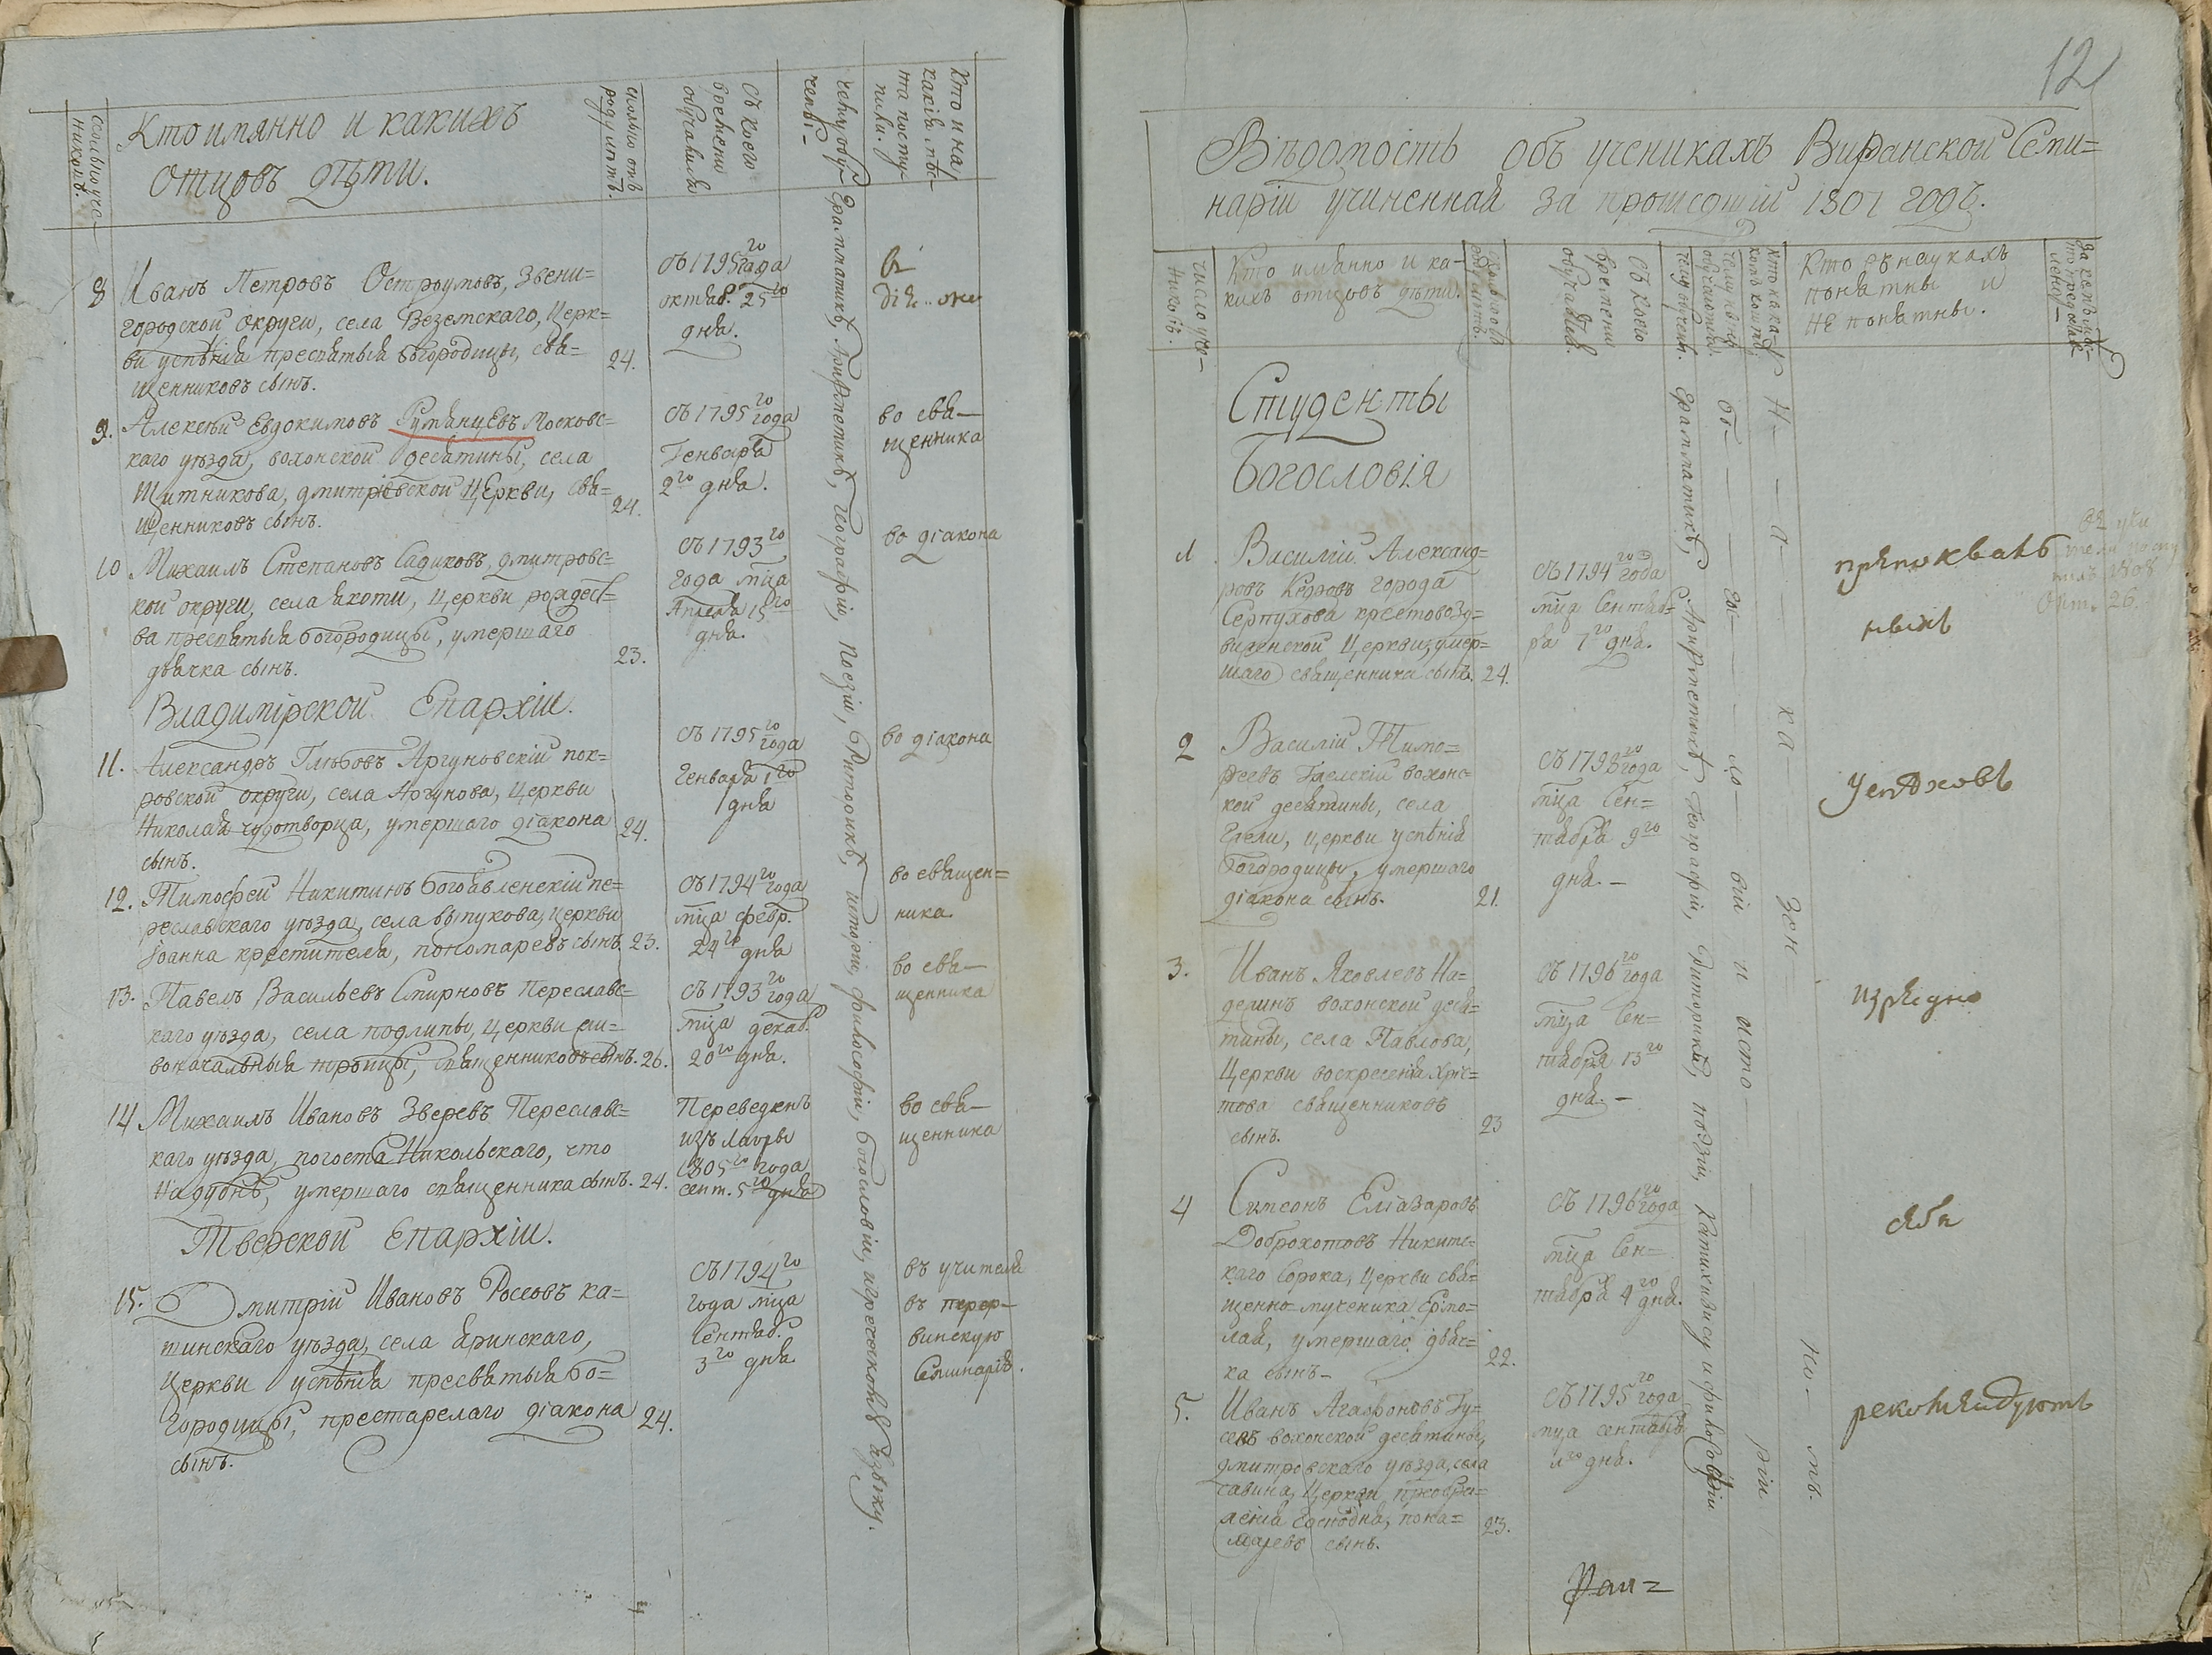 Сколько уче-
никовъ.
Кто имянно и какихъ
отцовъ дѣти.
сколько отъ
роду лѣтъ.
съ коего
времени
обучался
чему обу-
чены-
Кто и на
какія мѣ-
ста посту-
пили.
8
Иванъ Петровъ Остроумовъ, Звени=
городской округи, села Веземскаго, Церк=
ви успѣнія пресвятыя богородицы, свя=
щенниковъ сынъ.
24.
съ 1795го года
октяб. 25го
дня.
9.
Алексѣй Евдокимовъ Румянцевъ Московс=
каго уѣзда, вохонской десятины, села
Щитникова, дмитріевской Церкви, свя=
щенниковъ сынъ.
24.
съ 1795го года
Генваря
2го дня.
во свя-
щенника
10
Михаилъ Степановъ Садиковъ, дмитровс=
кой округи, села яхоти, Церкви рождест=
ва пресвятыя богородицы, умершаго
дьячка сынъ.
23.
съ 1793го
года мца
Апреля 15го
дня.
во діакона
Владимірской Епархіи.
11.
Александръ Глѣбовъ Аргуновскій пок=
ровской округи, села Аргунова, Церкви
Николая чудотворца, умершаго діакона
сынъ.
24.
съ 1795го года
Генваря 1го
дня
во діакона
12.
Тимофей Никитинъ Богоявленскій пе=
реславскаго уѣзда, села выпукова, Церкви
Іоанна крестителя, пономаревъ сынъ.
23.
съ 1794го года
мца февр.
24го дня
во священ=
ника.
13.
Павелъ Васильевъ Смирновъ Переславс=
каго уѣзда, села подлипы, Церкви жи=
воначальныя троицы, священниковъ сынъ.
26.
съ 1793го года
мца декаб.
20го дня.
во свя-
щенника
14
Михаилъ Ивановъ Зверевъ Переславс=
каго уѣзда, погоста Никольскаго, что
на дубнѣ, умершаго священника сынъ.
24.
Переведенъ
изъ Лавры
1805го года
сент. 5го дня
во свя-
щенника
Тверской Епархіи.
15.
Дмитрій Ивановъ Россовъ ка=
шинскаго уѣзда, села яринскаго,
Церкви успѣнія пресвятыя бо=
городицы, престарелаго діакона
сынъ.
24.
съ 1794го
года мца
Сентяб.
3го дня
въ учителя
въ перер-
винскую
Семинарію.
Грамматикѣ, Арифметикѣ, географіи, поезіи, Риторикѣ, исторіи, философіи, богословіи, и греческому языку.
12
Вѣдомость объ ученикахъ Виѳанской Семи=
наріи учиненная за прошедшій 1807 годъ.
число уче-
никовъ.
Кто имянно и ка-
кихъ отцовъ дѣти.
Съ коего
времени
обучался.
чему обучены.
Кто въ наукахъ
понятны и
не понятны.
Студенты
Богословія
1.
Василій Александ=
ровъ Кедровъ города
Серпухова крестовозд=
виженской Церкви, умер=
шаго священника сынъ.
24.
съ 1794го года
мца Сентяб=
ря 7го дня.
2
Василій Тимо=
феевъ Гжелскій вохонс=
кой десятины, села
Гжели, Церкви успѣнія
богородицы, умершаго
діакона сынъ.
21.
съ 1798го года
мца Сен=
тября 9го
дня. -
3.
Иванъ Яковлевъ На=
дежинъ вохонской деся=
тины, села Павлова,
Церкви воскресенія хрис=
това священниковъ
сынъ.
23
съ 1796го года
мца Сен=
тября 13го
дня. -
изрядно
4
Симеонъ Еліазаровъ
Доброхотовъ Никитс=
каго Сорока, Церкви свя=
щенно-мученика Ермо=
лая, умершаго дьяч=
ка сынъ-
22.
съ 1796го года
мца Сен=
тября 4го дня.
5.
Иванъ Агафоновъ Гу=
севъ вохонской десятины,
дмитровскаго уѣзда, села
савина, Церкви преобра=
женія Господня, поно=
маревъ сынъ.
23.
съ 1795го года
мца сентября
11го дня.
рекомендуютъ
Грамматикѣ, Арифметикѣ, Географіи, Риторикѣ, поэзіи, Катихизису и философіи
бо- го- сло- віи и исто- ріи
На- ка- зен- но- мъ.